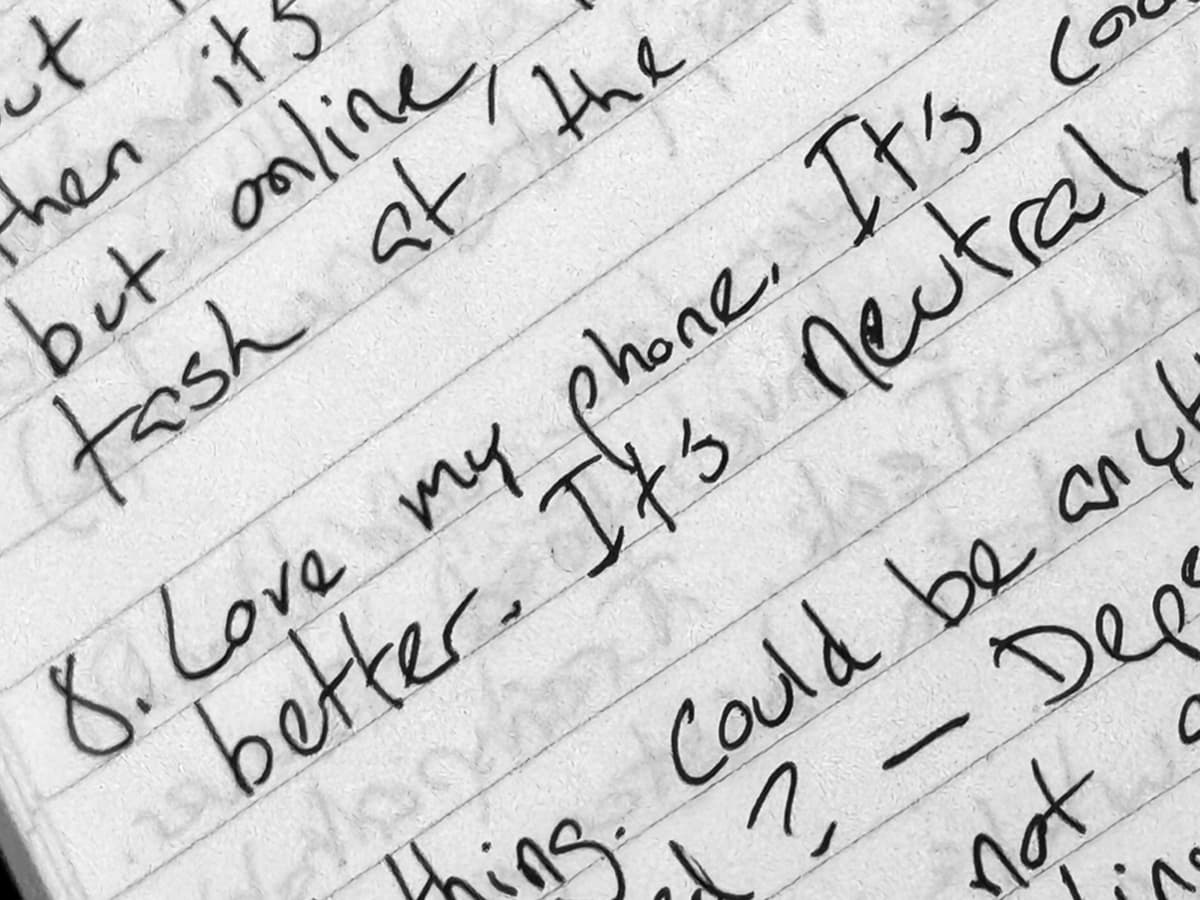 then it's
but online,
tash at the
8. Love my phone. It's
better. It's neutral,
thing. Could be
? -
not